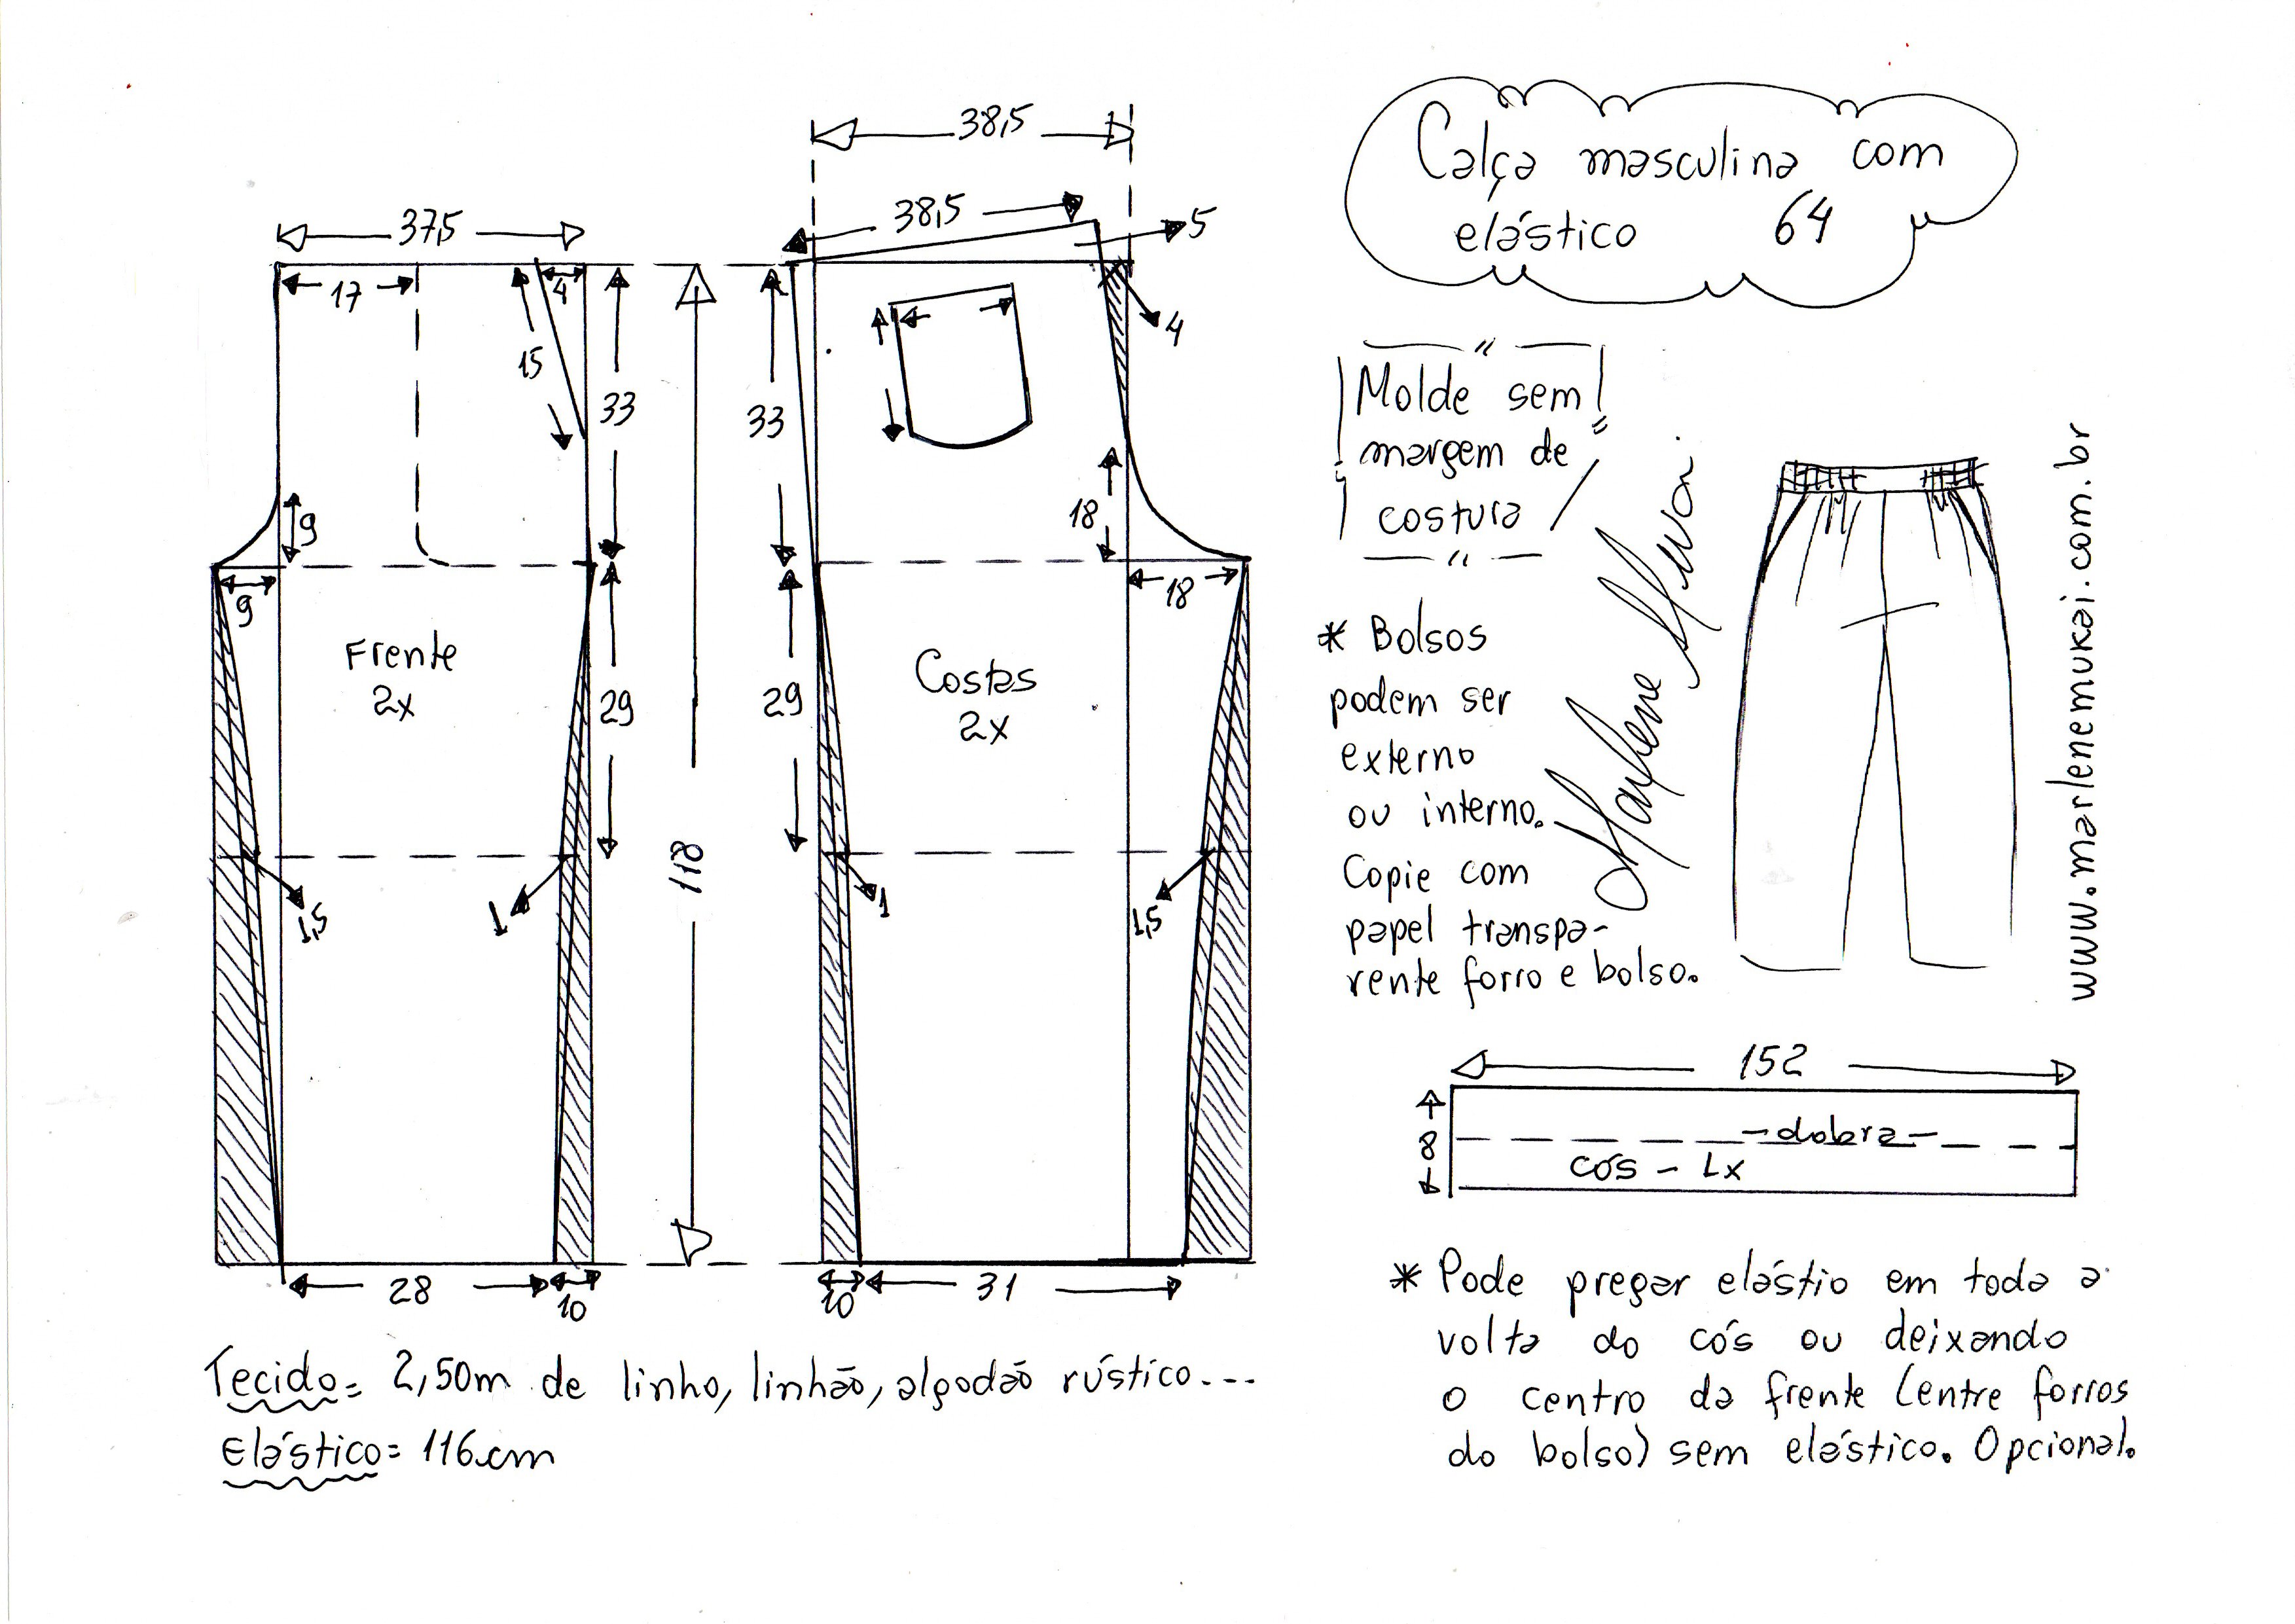 38,5
38,5
5
37,5
17
4
15
33
33
4
9
18
9
18
Frente
2x
Costas
2x
29
29
118
1,5
1
1
1,5
28
10
10
31
Tecido= 2,50m de linho, linhão, algodão rústico...
Elástico= 116cm
Calça masculina com
elástico 64
Molde sem
margem de
costura
* Bolsos
podem ser
externo
ou interno.
Copie com
papel transpa-
rente forro e bolso.
Marlene Mukai
www.marlenemukai.com.br
152
8
-dobra-
cós - 1x
* Pode pregar elástio em toda a
volta do cós ou deixando
o centro da frente (entre forros
do bolso) sem elástico. Opcional.